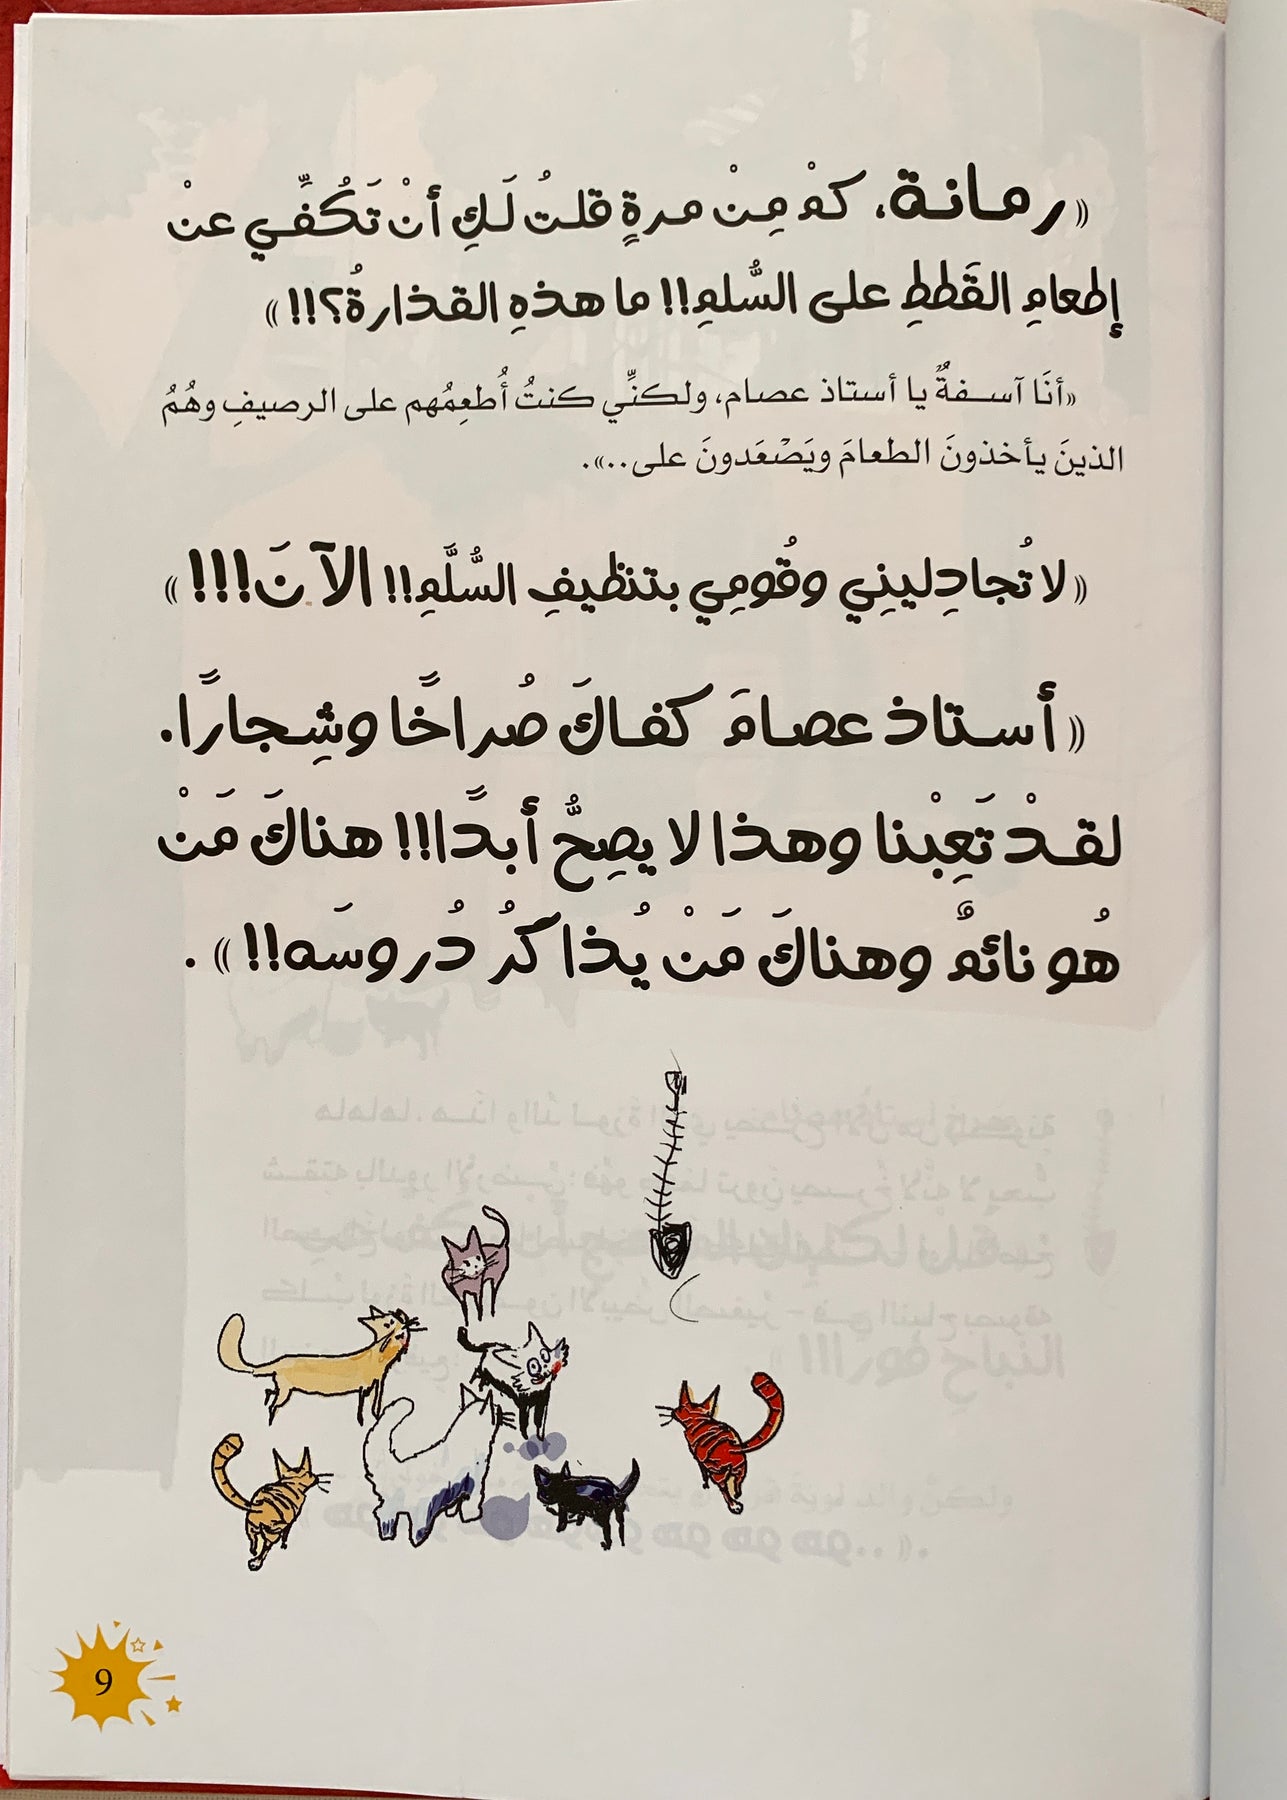 «رمانة، كمْ مِنْ مرةٍ قلتُ لَكِ أنْ تَكُفِّي عنْ
إطعامِ القَططِ على السُّلمِ!! ما هذهِ القذارةُ؟!!»
«أنَا آسفةٌ يا أستاذ عصام، ولكنِّي كنتُ أُطعِمُهم على الرصيفِ وهُمُ
الذينَ يأخذونَ الطعامَ ويَصْعَدونَ على..».
«لا تُجادِلينِي وقُومِي بتنظيفِ السُّلَّمِ!! الآنَ!!!»
«أستاذ عصامَ كفاكَ صُراخًا وشِجارًا.
لقدْ تَعِبْنا وهذا لا يصِحُّ أبدًا!! هناكَ مَنْ
هُو نائمٌ وهناكَ مَنْ يُذاكرُ دُروسَه!!».
9